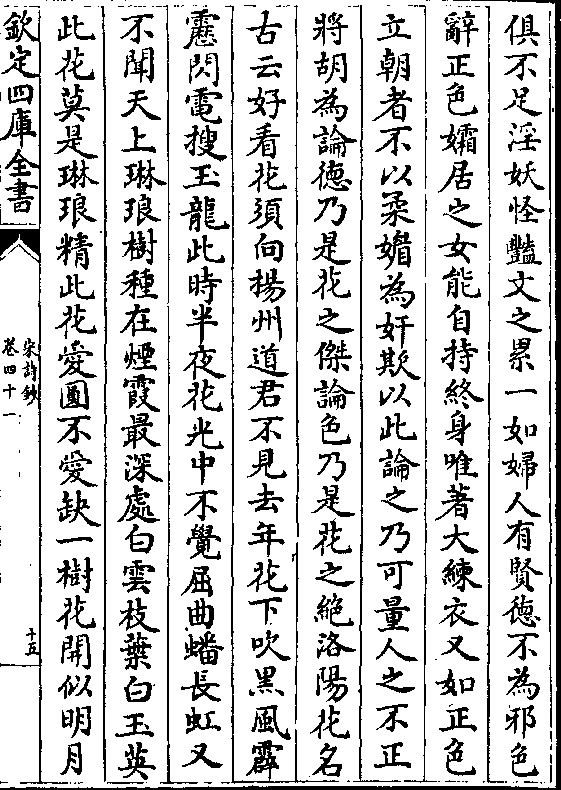 俱不足淫妖怪豔文之累一如婦人有賢德不為邪色
辭正色孀居之女能自持終身唯著大練衣又如正色
立朝者不以柔媚為奸欺以此論之乃可量人之不正
將胡為論德乃是花之傑論色乃是花之絕洛陽花名
古云好看花須向揚州道君不見去年花下吹黑風霹
靂閃電搜玉龍此時半夜花光中不覺屈曲蟠長虹又
不聞天上琳琅樹種在煙霞最深處白雲枝葉白玉英
此花莫是琳琅精此花愛圓不愛缺一樹花開似明月
欽定四庫全書
宋詩鈔
卷四十一
十五